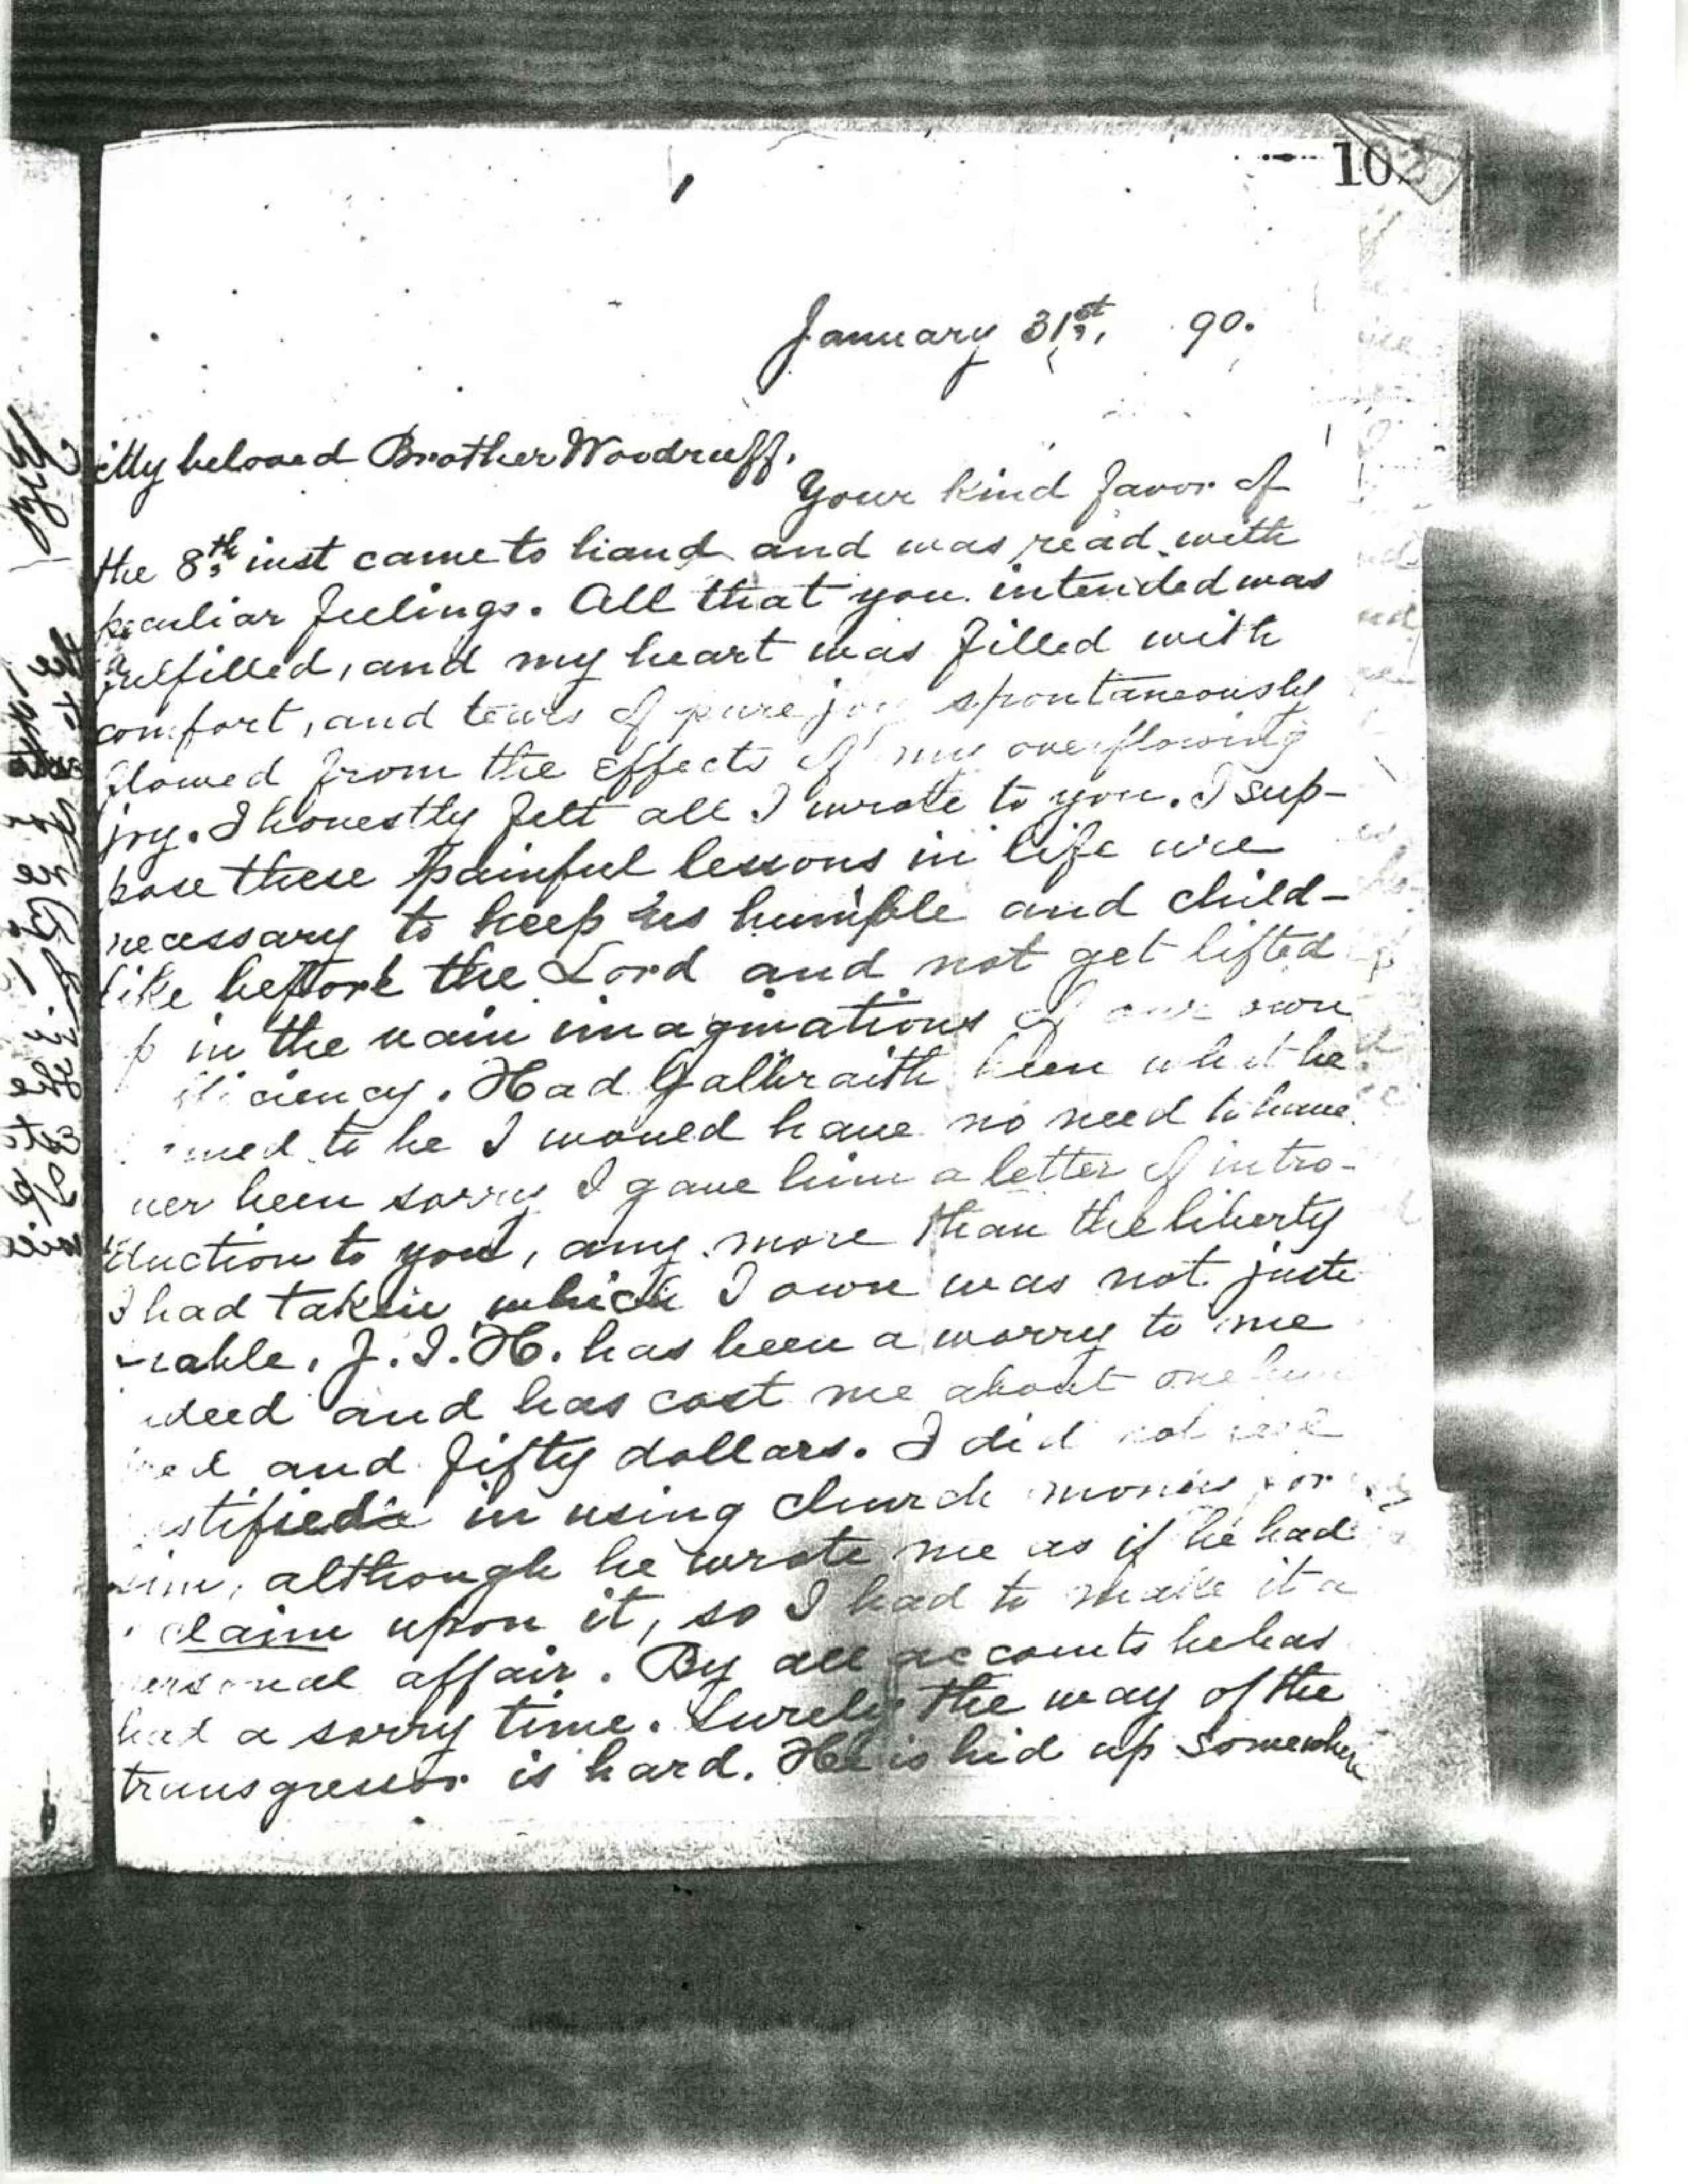 10
1
January 31st, 90.
My beloved Brother Woodruff.
Your kind favor of
the 8th inst came to hand and was read with
peculiar feelings. All that you intended was
fulfilled, and my heart was filled with
comfort, and tears of pure joy spontaneously
flowed from the effects of my overflowing
joy. I honestly felt all I wrote to you. I sup-
pose these painful lessons in life are
necessary to keep us humble and child-
like before the Lord and not get lifted
p in the vain imaginations of our own
iciency. Had Galbraith been what he
med to be I would have no need to have
ver been sorry I gave him a letter of intro-
duction to you, any more than the liberty
I had taken which I own was not justi
iable. J. I. H. has been a worry to me
ndeed and has cost me about one hun
red and fifty dollars. I did not feel
ustified in using church monies for
him, although he wrote me as if he had
claim upon it, so I had to make it a
personal affair. By all accounts he has
had a sorry time. Surely the way of the
transgressor is hard. He is hid up somewhere